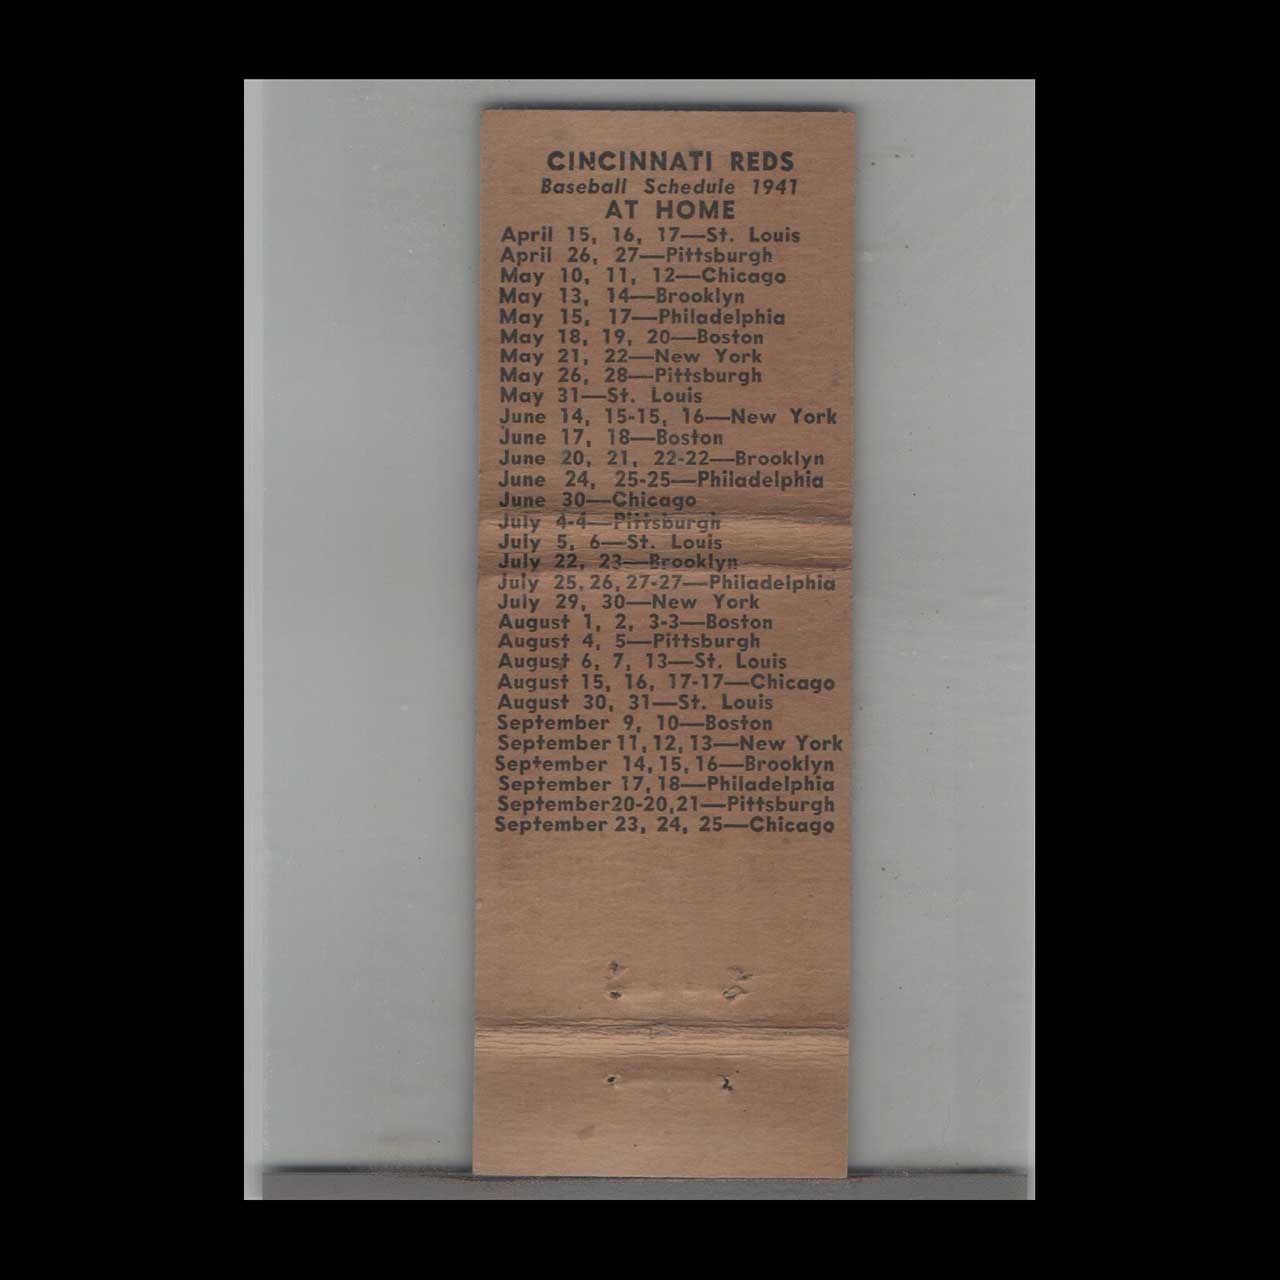 CINCINNATI REDS
Baseball Schedule 1941
AT HOME
April 15, 16, 17—St. Louis
April 26, 27—Pittsburgh
May 10, 11, 12—Chicago
May 13, 14—Brooklyn
May 15, 17—Philadelphia
May 18, 19, 20—Boston
May 21, 22—New York
May 26, 28—Pittsburgh
May 31—St. Louis
June 14, 15-15, 16—New York
June 17, 18—Boston
June 20, 21, 22-22—Brooklyn
June 24, 25-25—Philadelphia
June 30—Chicago
July 4-4—Pittsburgh
July 5, 6—St. Louis
July 22, 23—Brooklyn
July 25,26,27-27—Philadelphia
July 29, 30—New York
August 1, 2, 3-3—Boston
August 4, 5—Pittsburgh
August 6, 7, 13—St. Louis
August 15, 16, 17-17—Chicago
August 30, 31—St. Louis
September 9, 10—Boston
September 11,12,13—New York
September 14,15,16—Brooklyn
September 17,18—Philadelphia
September20-20,21—Pittsburgh
September 23, 24, 25—Chicago